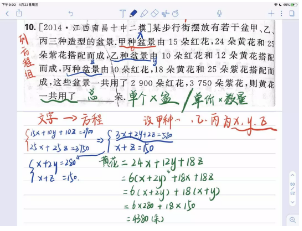 10.[2014·江西南昌十中二模]某步行街摆放有若干盆甲、乙、
丙三种造型的盆景.甲种盆景由15朵红花,24朵黄花和25
朵紫花搭配而成,乙种盆景由10朵红花和12朵黄花搭配
而成,丙种盆景由10朵红花,18朵黄花和25朵紫花搭配而
成,这些盆景一共用了2 900朵红花,3 750朵紫花,则黄花
一共用了 朵.
列方程组
总 单个×盆 / 单价×数量
文字 → 方程 设甲种、乙、丙为x,y,z
15x+10y+10z=2900
25x+25z=3750
3x+2y+2z=580
x+z=150
x+2y=280
x+z=150
黄花=24x+12y+18z
=6(x+2y)+18x+18z
=6(x+2y)+18(x+z)
=6×280+18×150
=4380(朵)